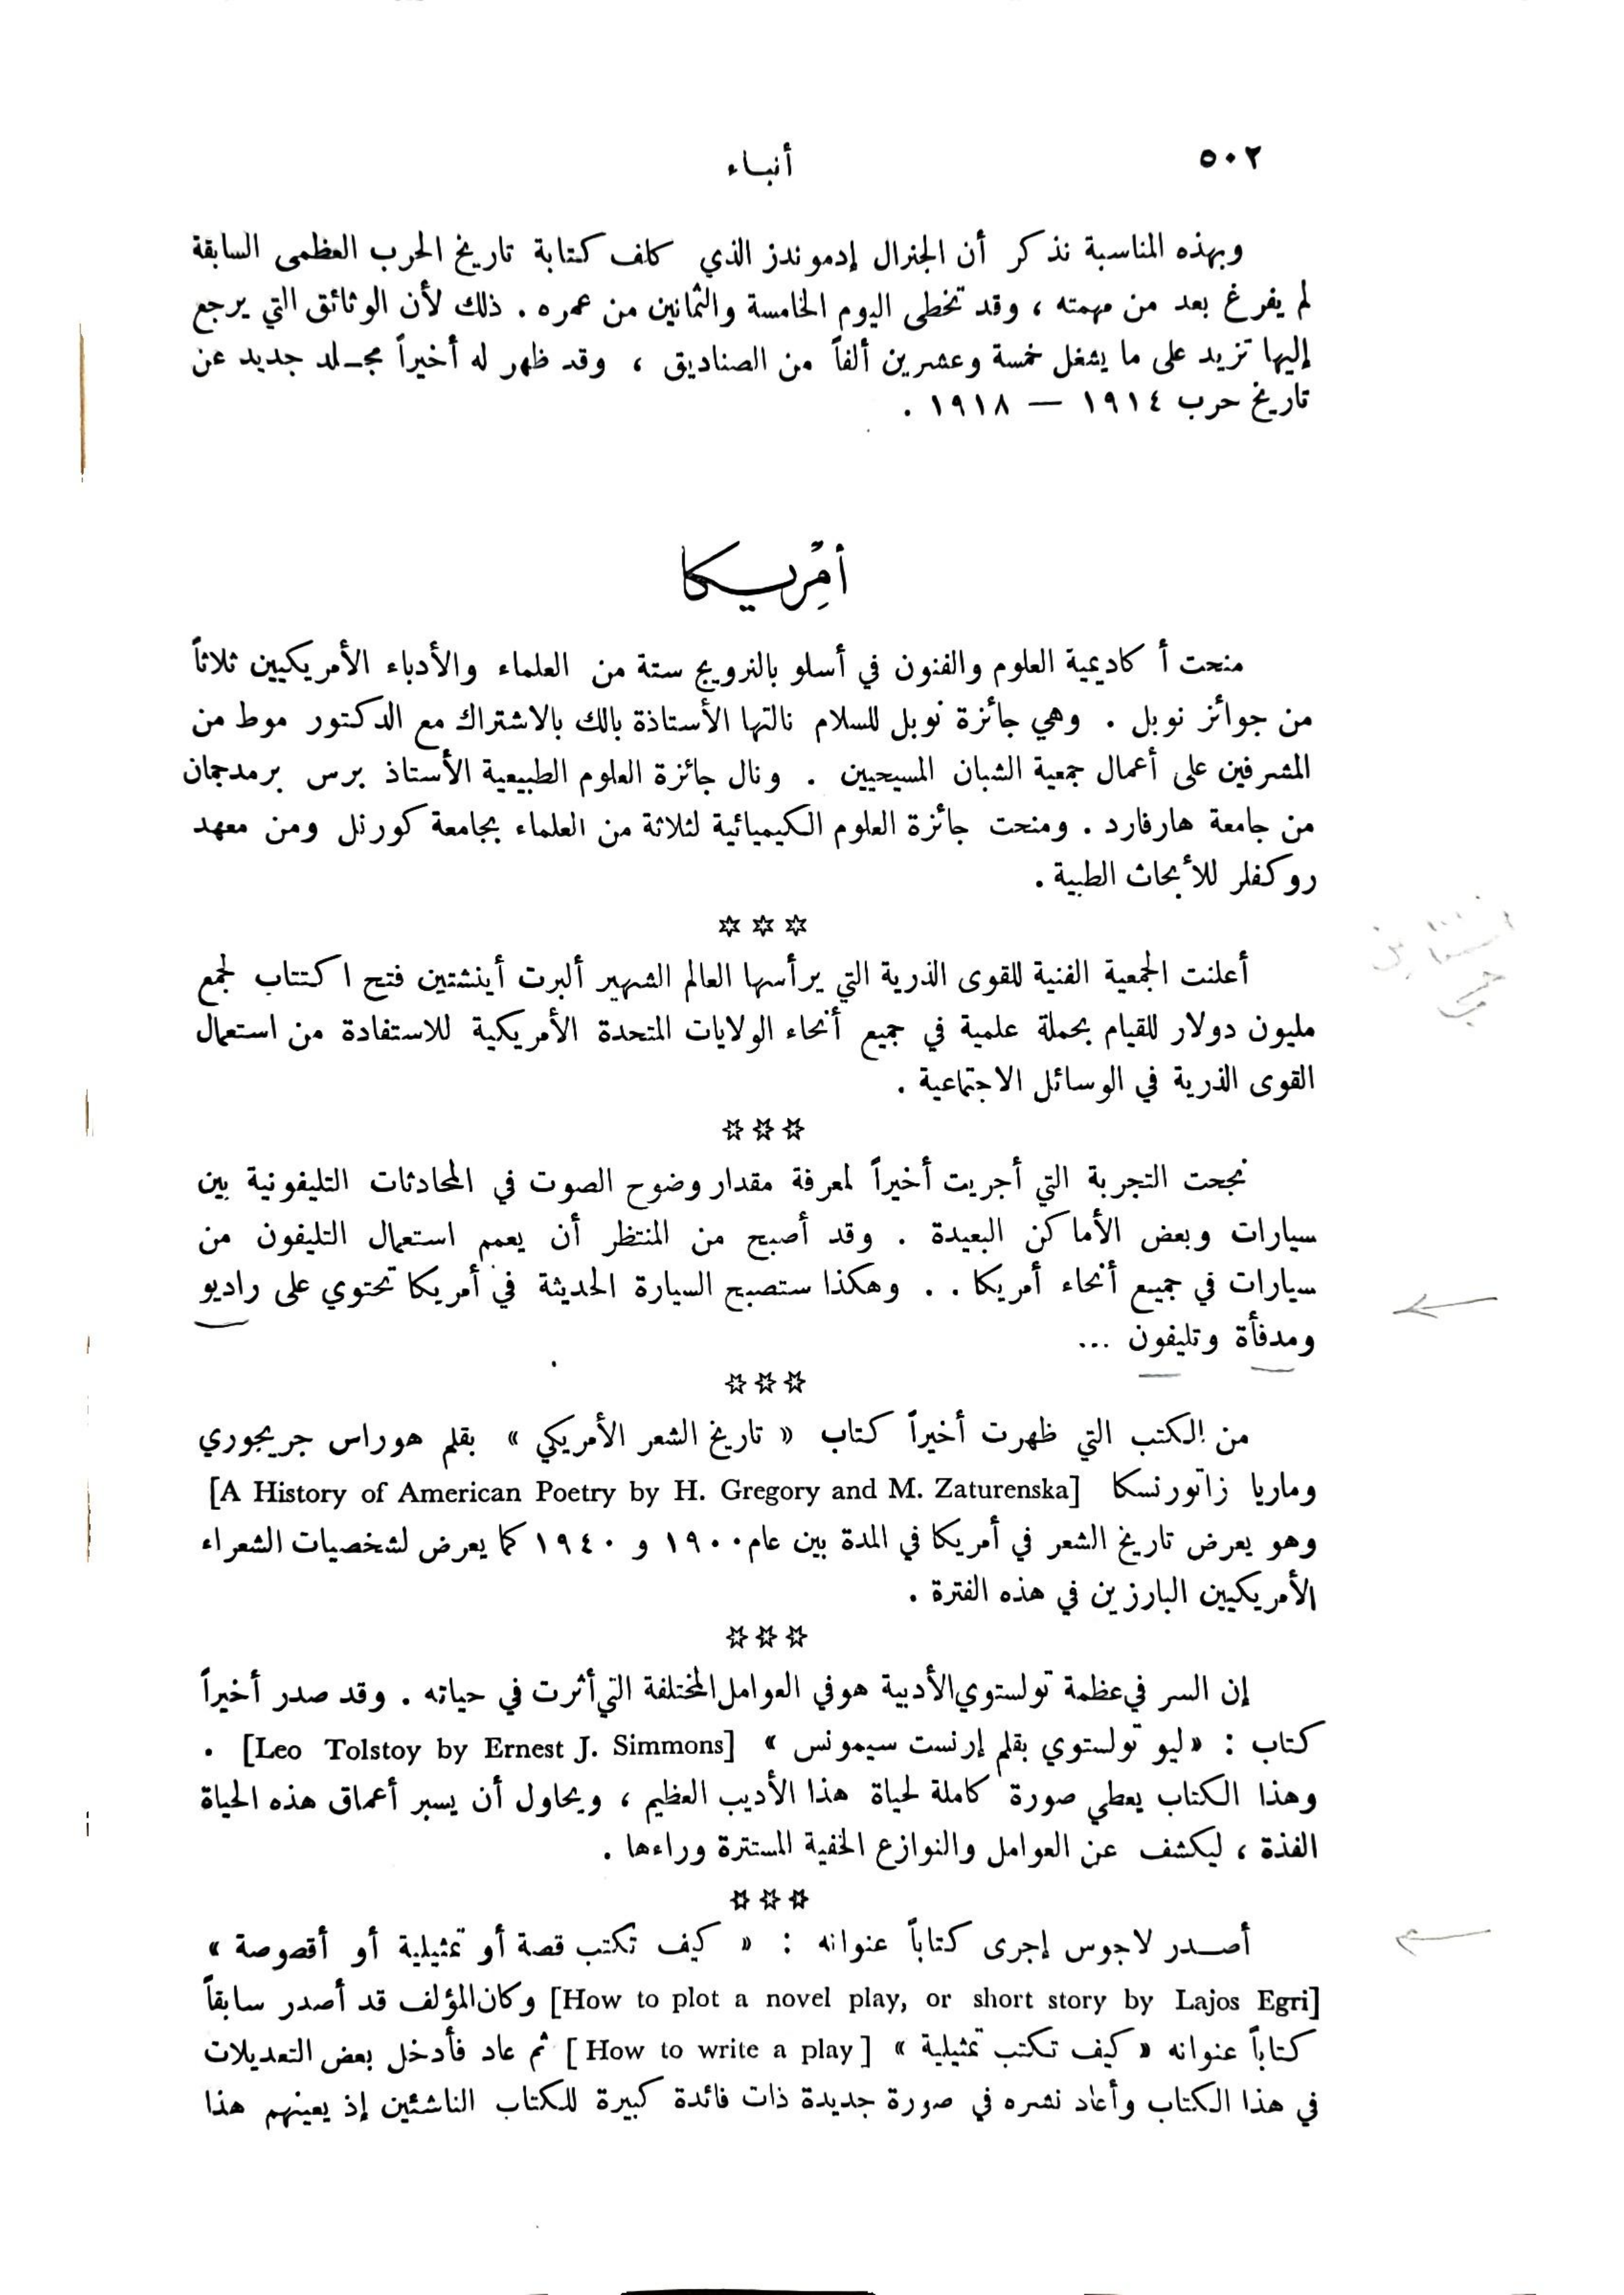 ٥٠٢
أنباء
وبهذه المناسبة نذكر أن الجنرال إدموندز الذي كلف كتابة تاريخ الحرب العظمى السابقة
لم يفرغ بعد من مهمته ، وقد تخطى اليوم الخامسة والثمانين من عمره . ذلك لأن الوثائق التي يرجع
إليها تزيد على ما يشغل خمسة وعشرين ألفاً من الصناديق ، وقد ظهر له أخيراً مجلد جديد عن
تاريخ حرب ١٩١٤ — ١٩١٨ .
أمريكا
منحت أكاديمية العلوم والفنون في أسلو بالنرويج ستة من العلماء والأدباء الأمريكيين ثلاثاً
من جوائز نوبل . وهي جائزة نوبل للسلام نالتها الأستاذة بالك بالاشتراك مع الدكتور موط من
المشرفين على أعمال جمعية الشبان المسيحيين . ونال جائزة العلوم الطبيعية الأستاذ برس برمدجمان
من جامعة هارفارد . ومنحت جائزة العلوم الكيميائية لثلاثة من العلماء بجامعة كورنل ومن معهد
روكفلر للأبحاث الطبية .
☆☆☆
أعلنت الجمعية الفنية للقوى الذرية التي يرأسها العالم الشهير ألبرت أينشتين فتح اكتتاب لجمع
مليون دولار للقيام بحملة علمية في جميع أنحاء الولايات المتحدة الأمريكية للاستفادة من استعمال
القوى الذرية في الوسائل الاجتماعية .
☆☆☆
نجحت التجربة التي أجريت أخيراً لمعرفة مقدار وضوح الصوت في المحادثات التليفونية بين
سيارات وبعض الأماكن البعيدة . وقد أصبح من المنتظر أن يعمم استعمال التليفون من
سيارات في جميع أنحاء أمريكا . . وهكذا ستصبح السيارة الحديثة في أمريكا تحتوي على راديو
ومدفأة وتليفون ...
☆☆☆
من الكتب التي ظهرت أخيراً كتاب « تاريخ الشعر الأمريكي » بقلم هوراس جريجوري
وماريا زاتورنسكا [A History of American Poetry by H. Gregory and M. Zaturenska]
وهو يعرض تاريخ الشعر في أمريكا في المدة بين عام ١٩٠٠ و ١٩٤٠ كما يعرض لشخصيات الشعراء
الأمريكيين البارزين في هذه الفترة .
☆☆☆
إن السر في عظمة تولستوي الأدبية هو في العوامل المختلفة التي أثرت في حياته . وقد صدر أخيراً
كتاب : « ليو تولستوي بقلم إرنست سيمونس » [Leo Tolstoy by Ernest J. Simmons] .
وهذا الكتاب يعطي صورة كاملة لحياة هذا الأديب العظيم ، ويحاول أن يسبر أعماق هذه الحياة
الفذة ، ليكشف عن العوامل والنوازع الخفية المستترة وراءها .
☆☆☆
أصدر لاجوس إجرى كتاباً عنوانه : « كيف تكتب قصة أو تمثيلية أو أقصوصة »
[How to plot a novel play, or short story by Lajos Egri] وكان المؤلف قد أصدر سابقاً
كتاباً عنوانه « كيف تكتب تمثيلية » [How to write a play] ثم عاد فأدخل بعض التعديلات
في هذا الكتاب وأعاد نشره في صورة جديدة ذات فائدة كبيرة للكتاب الناشئين إذ يعينهم هذا